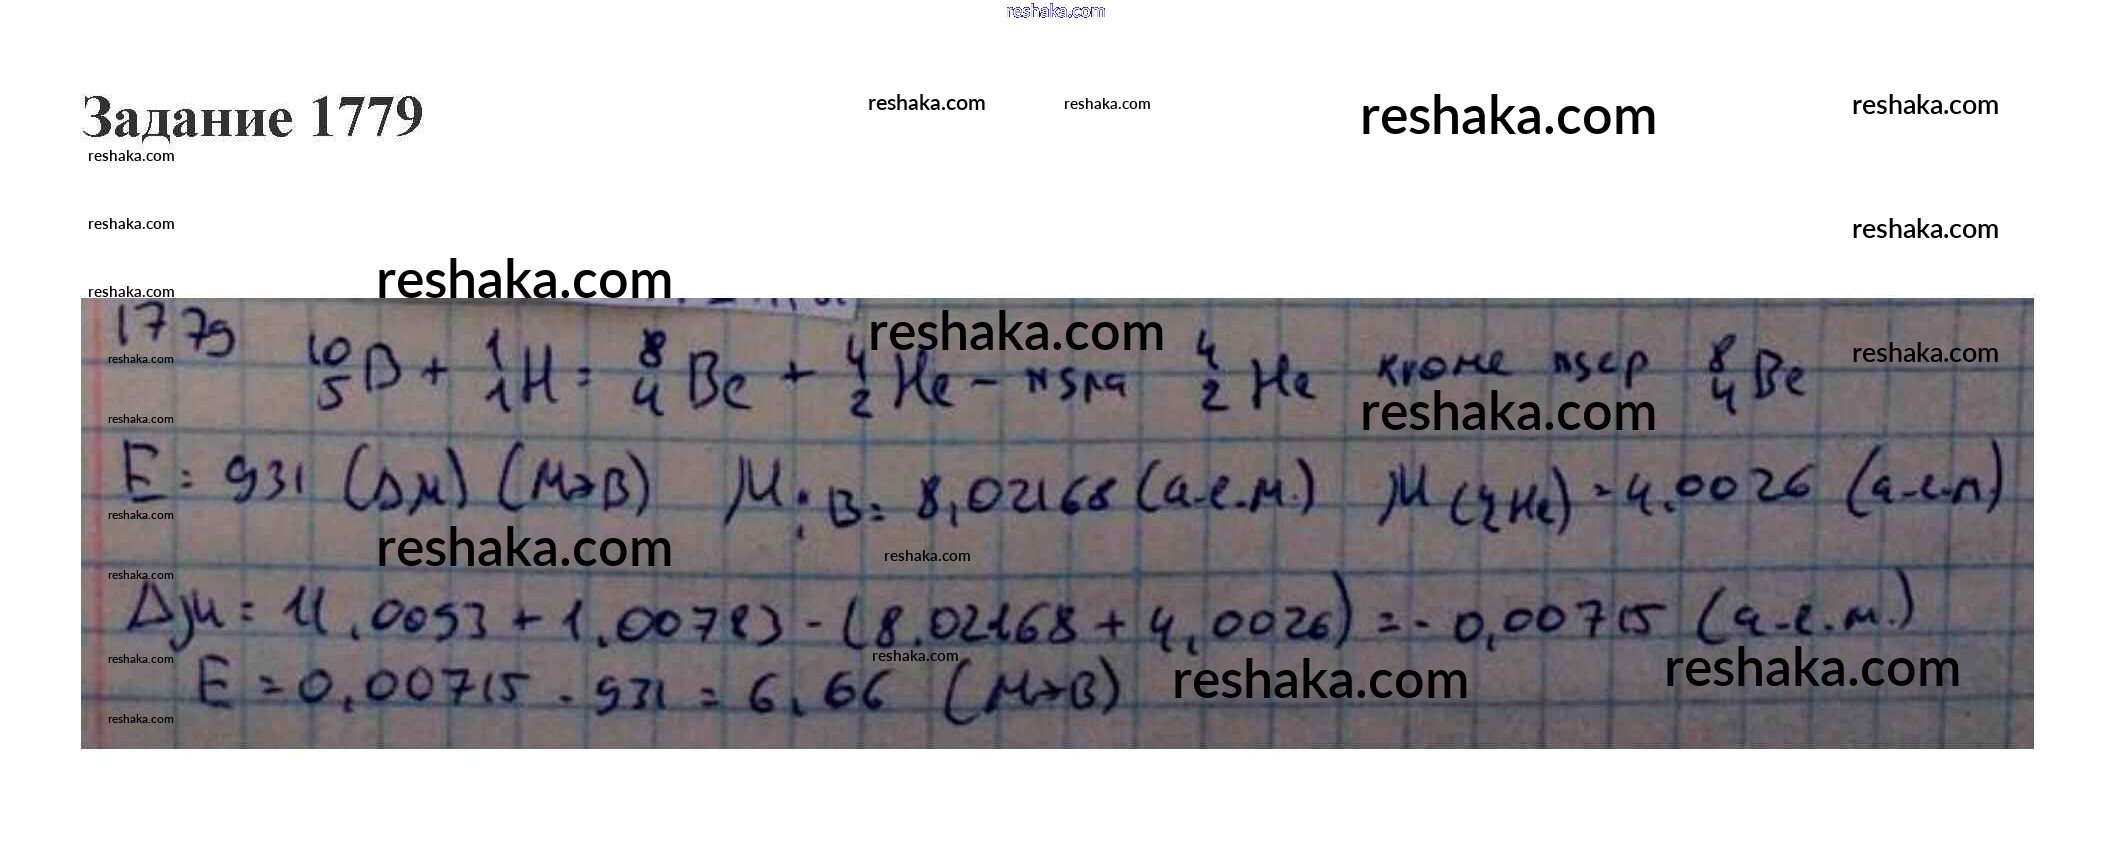 reshaka.com
Задание 1779
reshaka.com reshaka.com reshaka.com reshaka.com
reshaka.com
reshaka.com reshaka.com
reshaka.com
reshaka.com
1779 ¹⁰₅B + ¹₁H = ⁸₄Be + ⁴₂He - ядра ⁴₂He кроме ядер ⁸₄Be
reshaka.com
reshaka.com reshaka.com
reshaka.com reshaka.com
E = 931 (Δм) (МэВ) = 8,02168 (а.е.м.) М(⁴₂He) = 4.0026 (а.е.м)
reshaka.com
reshaka.com reshaka.com
reshaka.com
Δμ = 11.0093 + 1.00783 - (8.02168 + 4,0026) = - 0,00715 (а.е.м.)
reshaka.com reshaka.com
E = 0,00715 · 931 = 6,66 (МэВ)
reshaka.com reshaka.com
reshaka.com